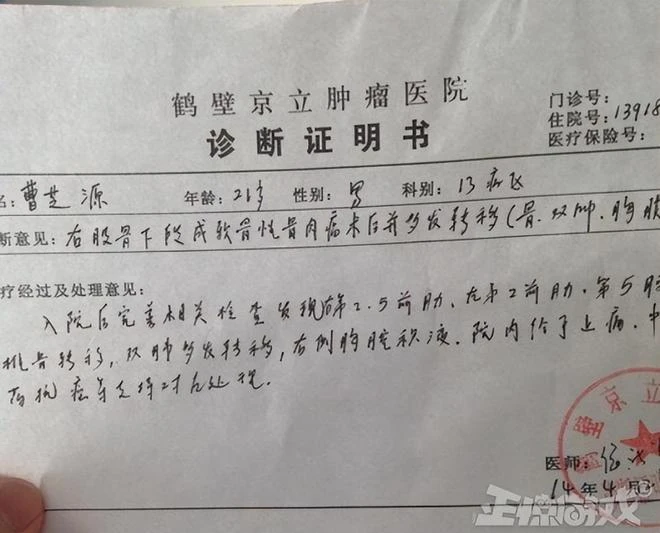 鹤壁京立肿瘤医院
诊断证明书
门诊号:
住院号:13918
医疗保险号:
名:曹芝源 年龄:21岁 性别:男 科别:13病区
断意见:右股骨下段成软骨性骨肉瘤术后并多发转移(骨.双肺.胸膜
疗经过及处理意见:
入院后完善相关检查发现右第2.5前肋、左第2前肋、第5胸
椎骨转移,双肺多发转移,右侧胸腔积液.院内给予止痛.中
药抗癌等支持对症处理.
医师:
14年4月
鹤壁京立
正惊游戏